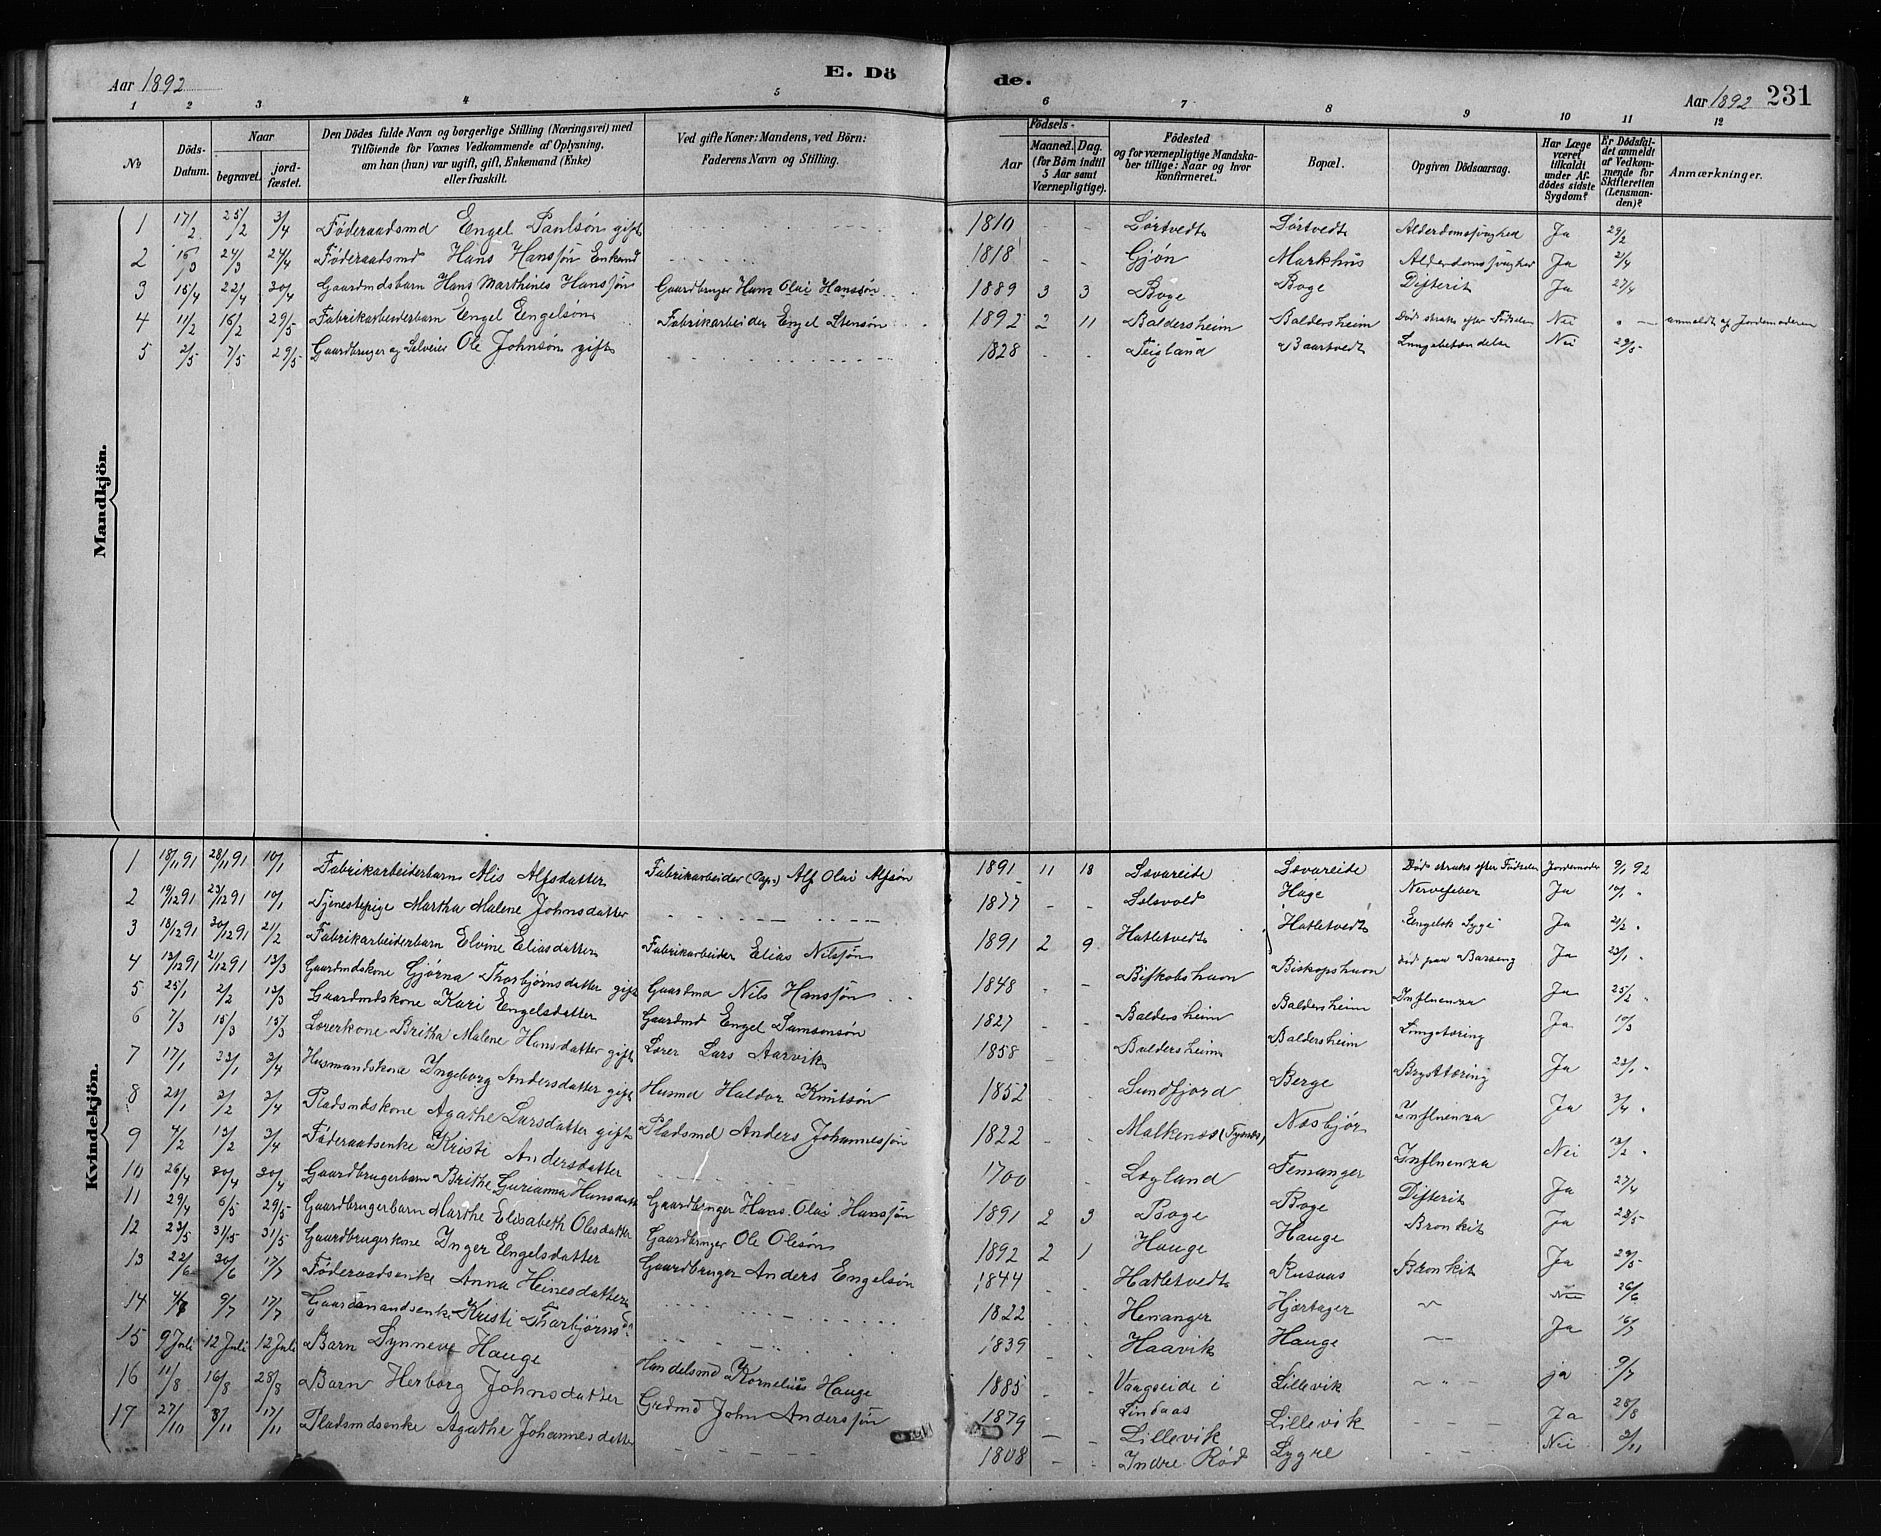 Aar 1892 E. Dö de. Aar 1892 231
1 2 3 4 5 6 7 8 9 10 11 12
No
Döds-Datum.
Naar
begravet.
jordfæstet.
Den Dödes fulde Navn og borgerlige Stilling (Næringsvei) med
Tilföiende for Voxnes Vedkommende af Oplysning,
om han (hun) var ugift, gift, Enkemand (Enke)
eller fraskilt.
Ved gifte Koner: Mandens, ved Börn:
Faderens Navn og Stilling.
Födsels-
Aar
Maaned. Dag.
(for Börn indtil
5 Aar samt
Værnepligtige).
Födested
og for værnepligtige Mandska-
ber tillige: Naar og hvor
konfirmeret.
Bopæl.
Opgiven Dödsaarsag.
Har Læge
været
tilkaldt
under Af-
dödes sidste
Sygdom?
Er Dödsfal-
det anmeldt
af Vedkom-
mende for
Skifteretten
(Lensman-
den)?
Anmærkninger.
Mandkjön.
1 17/2 25/2 3/4 Føderaadsmd Engel Paulsøn gift 1810 - - Lørtvedt Lørtvedt Alderdomssvaghed Ja 29/2
2 16/3 24/3 24/4 Føderaadsmd Hans Hanssøn Enkemd 1818 - - Gjøn Markhus Alderdomssvaghed Ja 2/4
3 15/4 22/4 30/4 Gaardmdsbarn Hans Marthines Hanssøn Gaardbruger Hans Olai Hanssøn 1889 3 3 Boge Boge Difterit Ja 27/4
4 11/2 16/2 29/5 Fabrikarbeiderbarn Engel Engelsøn Fabrikarbeider Engel Stensøn 1892 2 11 Baldersheim Baldersheim Død straks efter Fødselen Nei " - anmeldt af Jordemoderen
5 2/5 7/5 29/5 Gaardbruger og Selveier Ole Johnsøn gift 1828 - - Teigland Baartvedt Lungebetændelse Nei 29/5
Kvindekjön.
1 18/11 91 28/11 91 10/1 Fabrikarbeiderbarn Alis Alfsdatter Fabrikarbeider (Pap.) Alf Olai Alfsøn 1891 11 18 Svareide Svareide Død straks efter Fødselen Jordemoder 9/1 92
2 19/12 91 23/12 91 10/1 Tjenestepige Martha Malene Johnsdatter 1877 - - Selsvold Hage Nervefeber Ja 10/1 "
3 18/12 91 30/12 91 21/2 Fabrikarbeiderbarn Elvine Eliasdatter Fabrikarbeider Elias Nilssøn 1891 2 9 Hatletvedt Hatletvedt Engelsk Syge Ja 21/2 "
4 13/12 91 21/12 91 13/3 Gaardmdskone Gjørna Thorbjørnsdatter gift Gaardmd Nils Hanssøn 1848 - - Biskobshavn Biskopshavn død paa Barseng Ja 23/1 "
5 25/1 2/2 13/3 Gaardmdskone Kari Engelsdatter Gaardmd Engel Samsonsøn 1827 - - Baldersheim Baldersheim Influenza Ja 25/2 "
6 7/3 15/3 15/3 Lærerkone Britha Malene Hansdatter gift Lærer Lars Aarvik 1858 - - Baldersheim Baldersheim Lungetæring Ja 10/3
7 17/1 23/1 3/4 Husmandskone Ingeborg Andersdatter gift Husmd Haldor Knutsøn 1852 - - Sundfjord Berge Brysttæring Ja 22/1 "
8 21/1 2/2 3/4 Pladsmdskone Agathe Larsdatter gift Pladsmd Anders Johannessøn 1822 - - Malkenæs (Tysnæs) Næsbjør Influenza Ja 3/4 "
9 4/2 13/2 3/4 Føderaadsenke Kristi Andersdatter 1700 - Lægland Femanger Influenza Nei 13/2 "
10 26/4 30/4 30/4 Gaardbrugerbarn Brithe Gurianna Hansdatt Gaardbruger Hans Olai Hanssøn 1891 2 3 Boge Boge Difterit Ja 27/4
11 29/4 6/5 29/5 Gaardbrugerbarn Marthe Elisabeth Olesdatter Gaardbruger Ole Olesøn 1892 2 1 Hauge Hauge Bronkit Ja 28/5
12 23/5 31/5 31/5 Gaardbrugerkone Inger Engelsdatter Gaardbruger Anders Engelsøn 1844 - - Hatletvedt Rusaas Bronkit Ja 29/5
13 22/6 30/6 17/7 Føderaadsenke Anna Heinesdatter 1822 - - Henanger Hjærtager Nei 26/6
14 4/7 9/7 17/7 Gaardmandsenke Kristi Thorbjørnsd 1839 - - Haavik Hauge Ja 16/7
15 9 Juli 12 Juli 12 Juli Barn Synneve Hauge Handelsmd Kornelius Hauge 1885 - - Vaagseide i Lindaas Lillevik ja 9/7
16 11/8 16/8 28/8 Barn Herborg Johnsdatter Grdmd John Anderssøn 1879 - - Lillevik Lillevik Ja 28/8
17 27/10 3/11 17/11 Pladsmdsenke Agathe Johannesdatter 1808 - - Indre Rød Lygre Nei 2/11